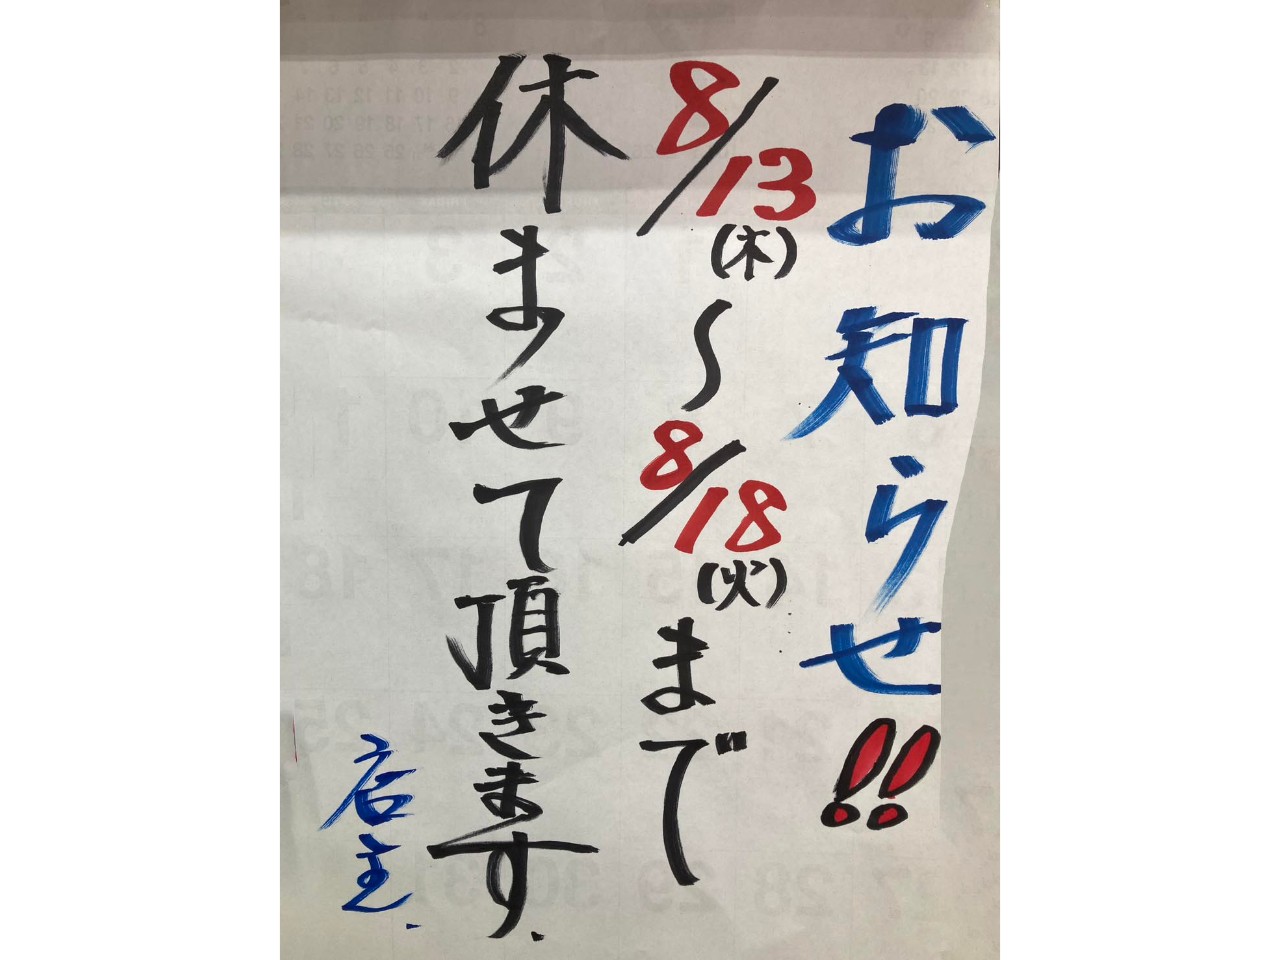 お知らせ!!
8/13(木)〜8/18(火)まで
休ませて頂きます.
店主.